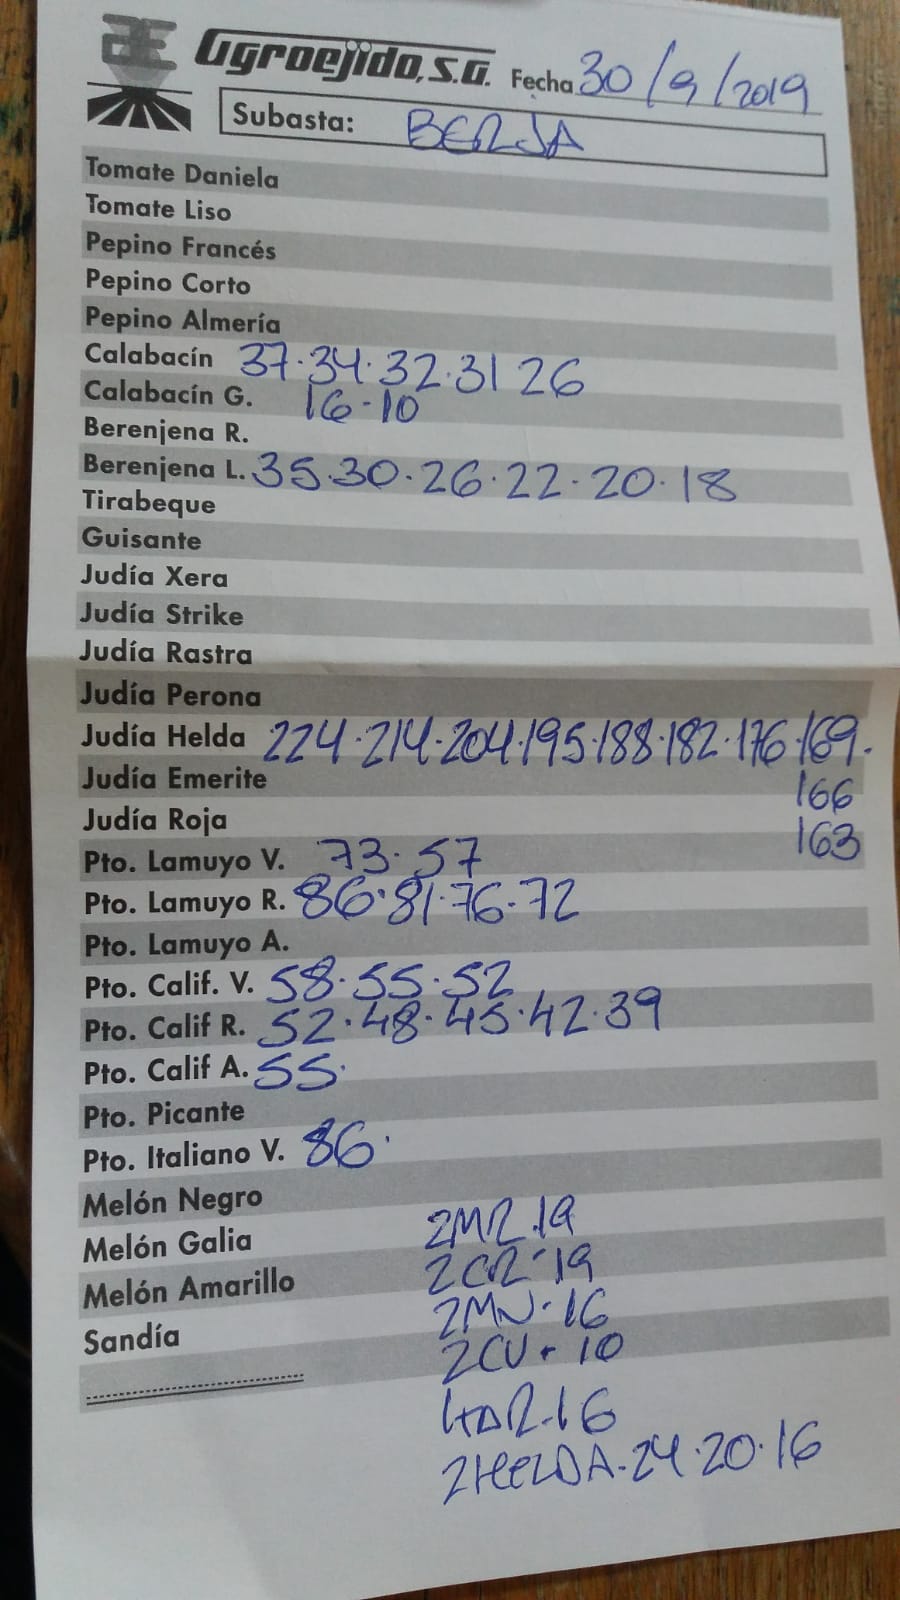 Agroejido, S.A. Fecha 30/9/2019
Subasta: BERJA
Tomate Daniela
Tomate Liso
Pepino Francés
Pepino Corto
Pepino Almería
Calabacín 37.34.32.31 26
Calabacín G. 16-10
Berenjena R.
Berenjena L. 35.30.26.22.20.18
Tirabeque
Guisante
Judía Xera
Judía Strike
Judía Rastra
Judía Perona
Judía Helda 224.214.204.195.188.182.176.169.
Judía Emerite 166
Judía Roja 163
Pto. Lamuyo V. 73.57
Pto. Lamuyo R. 86.81.76.72
Pto. Lamuyo A.
Pto. Calif. V. 58.55.52
Pto. Calif R. 52.48.45.42.39
Pto. Calif A. 55.
Pto. Picante
Pto. Italiano V. 86.
Melón Negro
Melón Galia 2MR.19
Melón Amarillo 2CR-19
Sandía 2MN-16
2CV-10
16
2HELDA-24.20.16